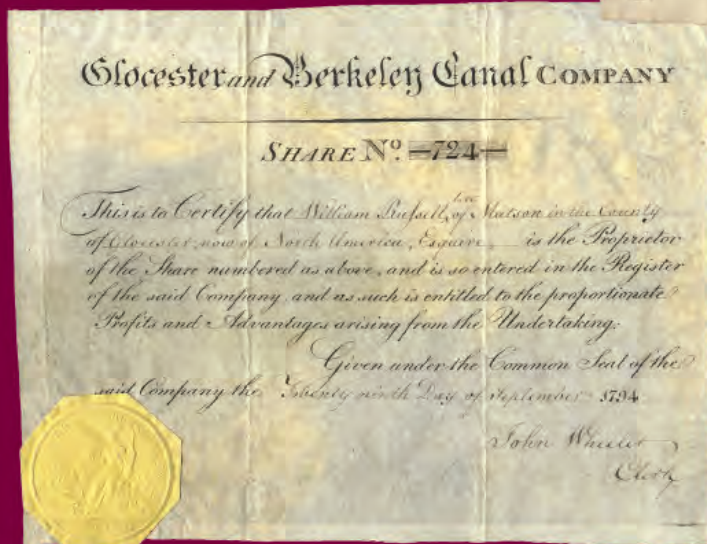 Glocester and Berkeley Canal COMPANY
SHARE No. 724
late
This is to Certify that William Russell, of Matson in the County
of Glocester, now of North America, Esquire, is the Proprietor
of the Share numbered as above, and is so entered in the Register
of the said Company, and as such is entitled to the proportionate
Profits and Advantages arising from the Undertaking.
Given under the Common Seal of the
said Company the Twenty ninth Day of September 1794
John Wheeler
Clerk